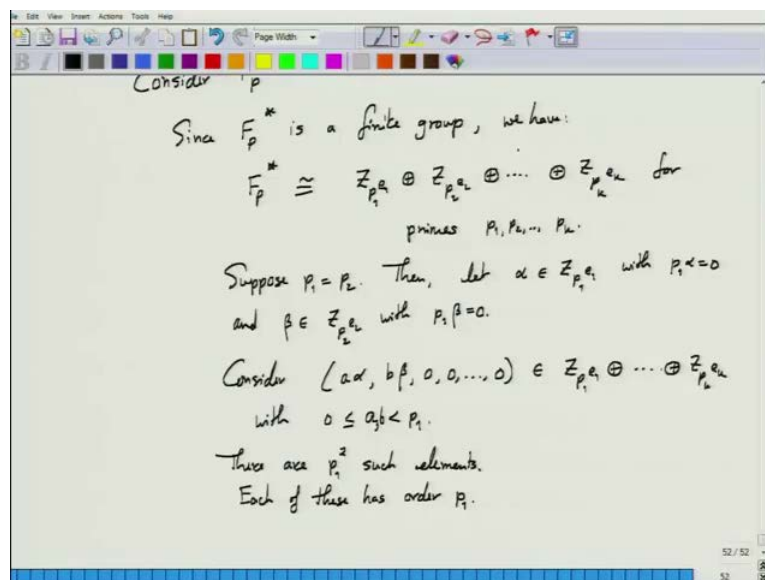 File Edit View Insert Actions Tools Help
Page Width
B I
Consider F_p
Since F_p^* is a finite group, we have:
F_p^* ≅ Z_{p_1^{e_1}} ⊕ Z_{p_2^{e_2}} ⊕ .... ⊕ Z_{p_k^{e_k}} for
primes p_1, p_2, .., p_k.
Suppose p_1 = p_2. Then, let α ∈ Z_{p_1^{e_1}} with p_1 α = 0
and β ∈ Z_{p_2^{e_2}} with p_2 β = 0.
Consider (aα, bβ, 0, 0, ..., 0) ∈ Z_{p_1^{e_1}} ⊕ .... ⊕ Z_{p_k^{e_k}}
with 0 ≤ a, b < p_1.
There are p_1^2 such elements.
Each of these has order p_1.
52 / 52
52